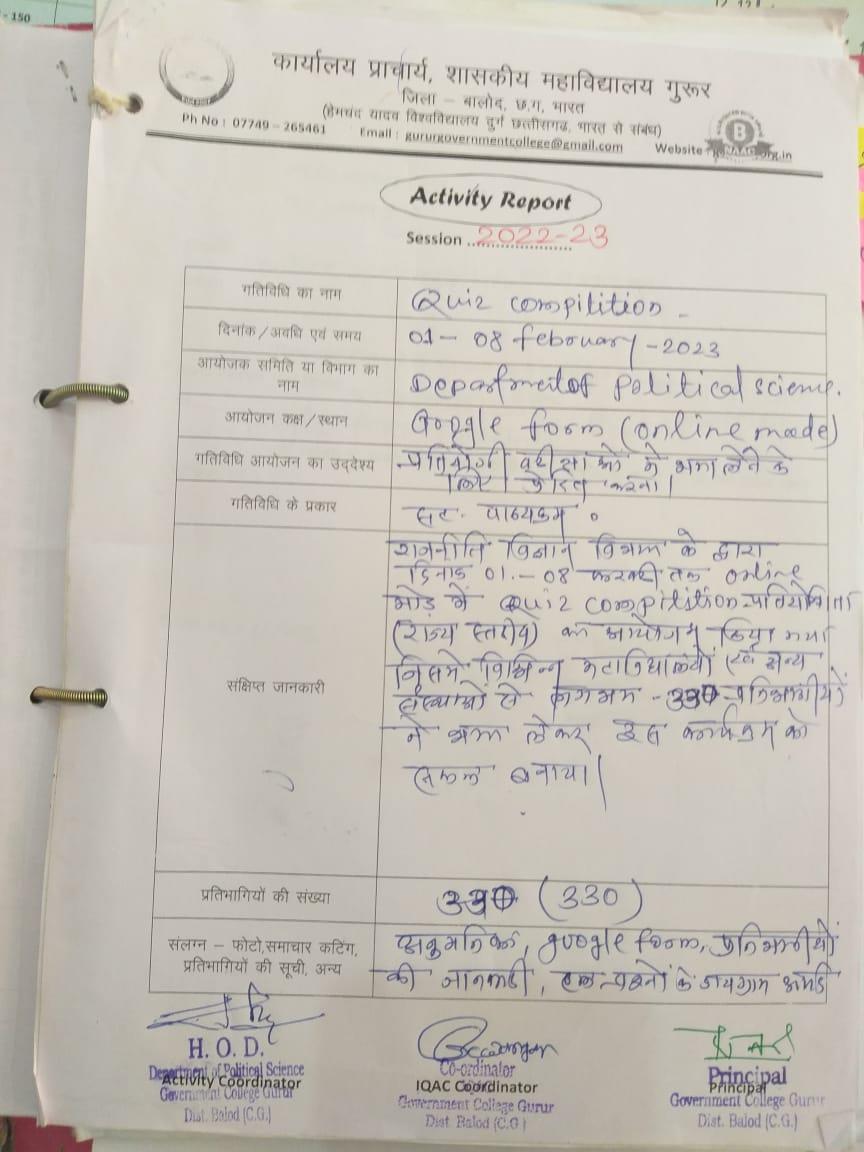 - 150
कार्यालय प्राचार्य, शासकीय महाविद्यालय गुरूर
जिला – बालोद, छ.ग. भारत
(हेमचंद यादव विश्वविद्यालय दुर्ग छत्तीसगढ, भारत से संबंध)
Ph No : 07749 - 265461 Email : gururgovernmentcollege@gmail.com Website
B
NAAC
Activity Report
Session 2022-23
गतिविधि का नाम
Quiz compilition -
दिनांक/अवधि एवं समय
01- 08 february-2023
आयोजक समिति या विभाग का
नाम
Department of political science.
आयोजन कक्ष/स्थान
Google form (online mode)
गतिविधि आयोजन का उद्देश्य
प्रतियोगी परीक्षाओं में भाग लेने के
लिए प्रेरित करना।
गतिविधि के प्रकार
सह- पाठ्यक्रम
संक्षिप्त जानकारी
राजनीति विज्ञान विभाग के द्वारा
दिनांक 01.-08 फरवरी तक online
मोड में Quiz compitistion-प्रतियोगिता
(राज्य स्तरीय) का आयोजन किया गया
जिसमें विभिन्न महाविद्यालयों एवं अन्य
संस्थाओं से लगभग -330 प्रतिभागीयों
ने भाग लेकर इस कार्यक्रम को
सफल बनाया।
प्रतिभागियों की संख्या
330 (330)
संलग्न – फोटो,समाचार कटिंग,
प्रतिभागियों की सूची, अन्य
google form, प्रतिभागीयों
की जानकारी,
H. O. D.
Department of Political Science
Activity Coordinator
Government College Gurur
Dist. Balod (C.G.)
Co-ordinator
IQAC Coordinator
Government College Gurur
Dist. Balod (C.G)
Principal
Principal
Government College Gurur
Dist. Balod (C.G.)